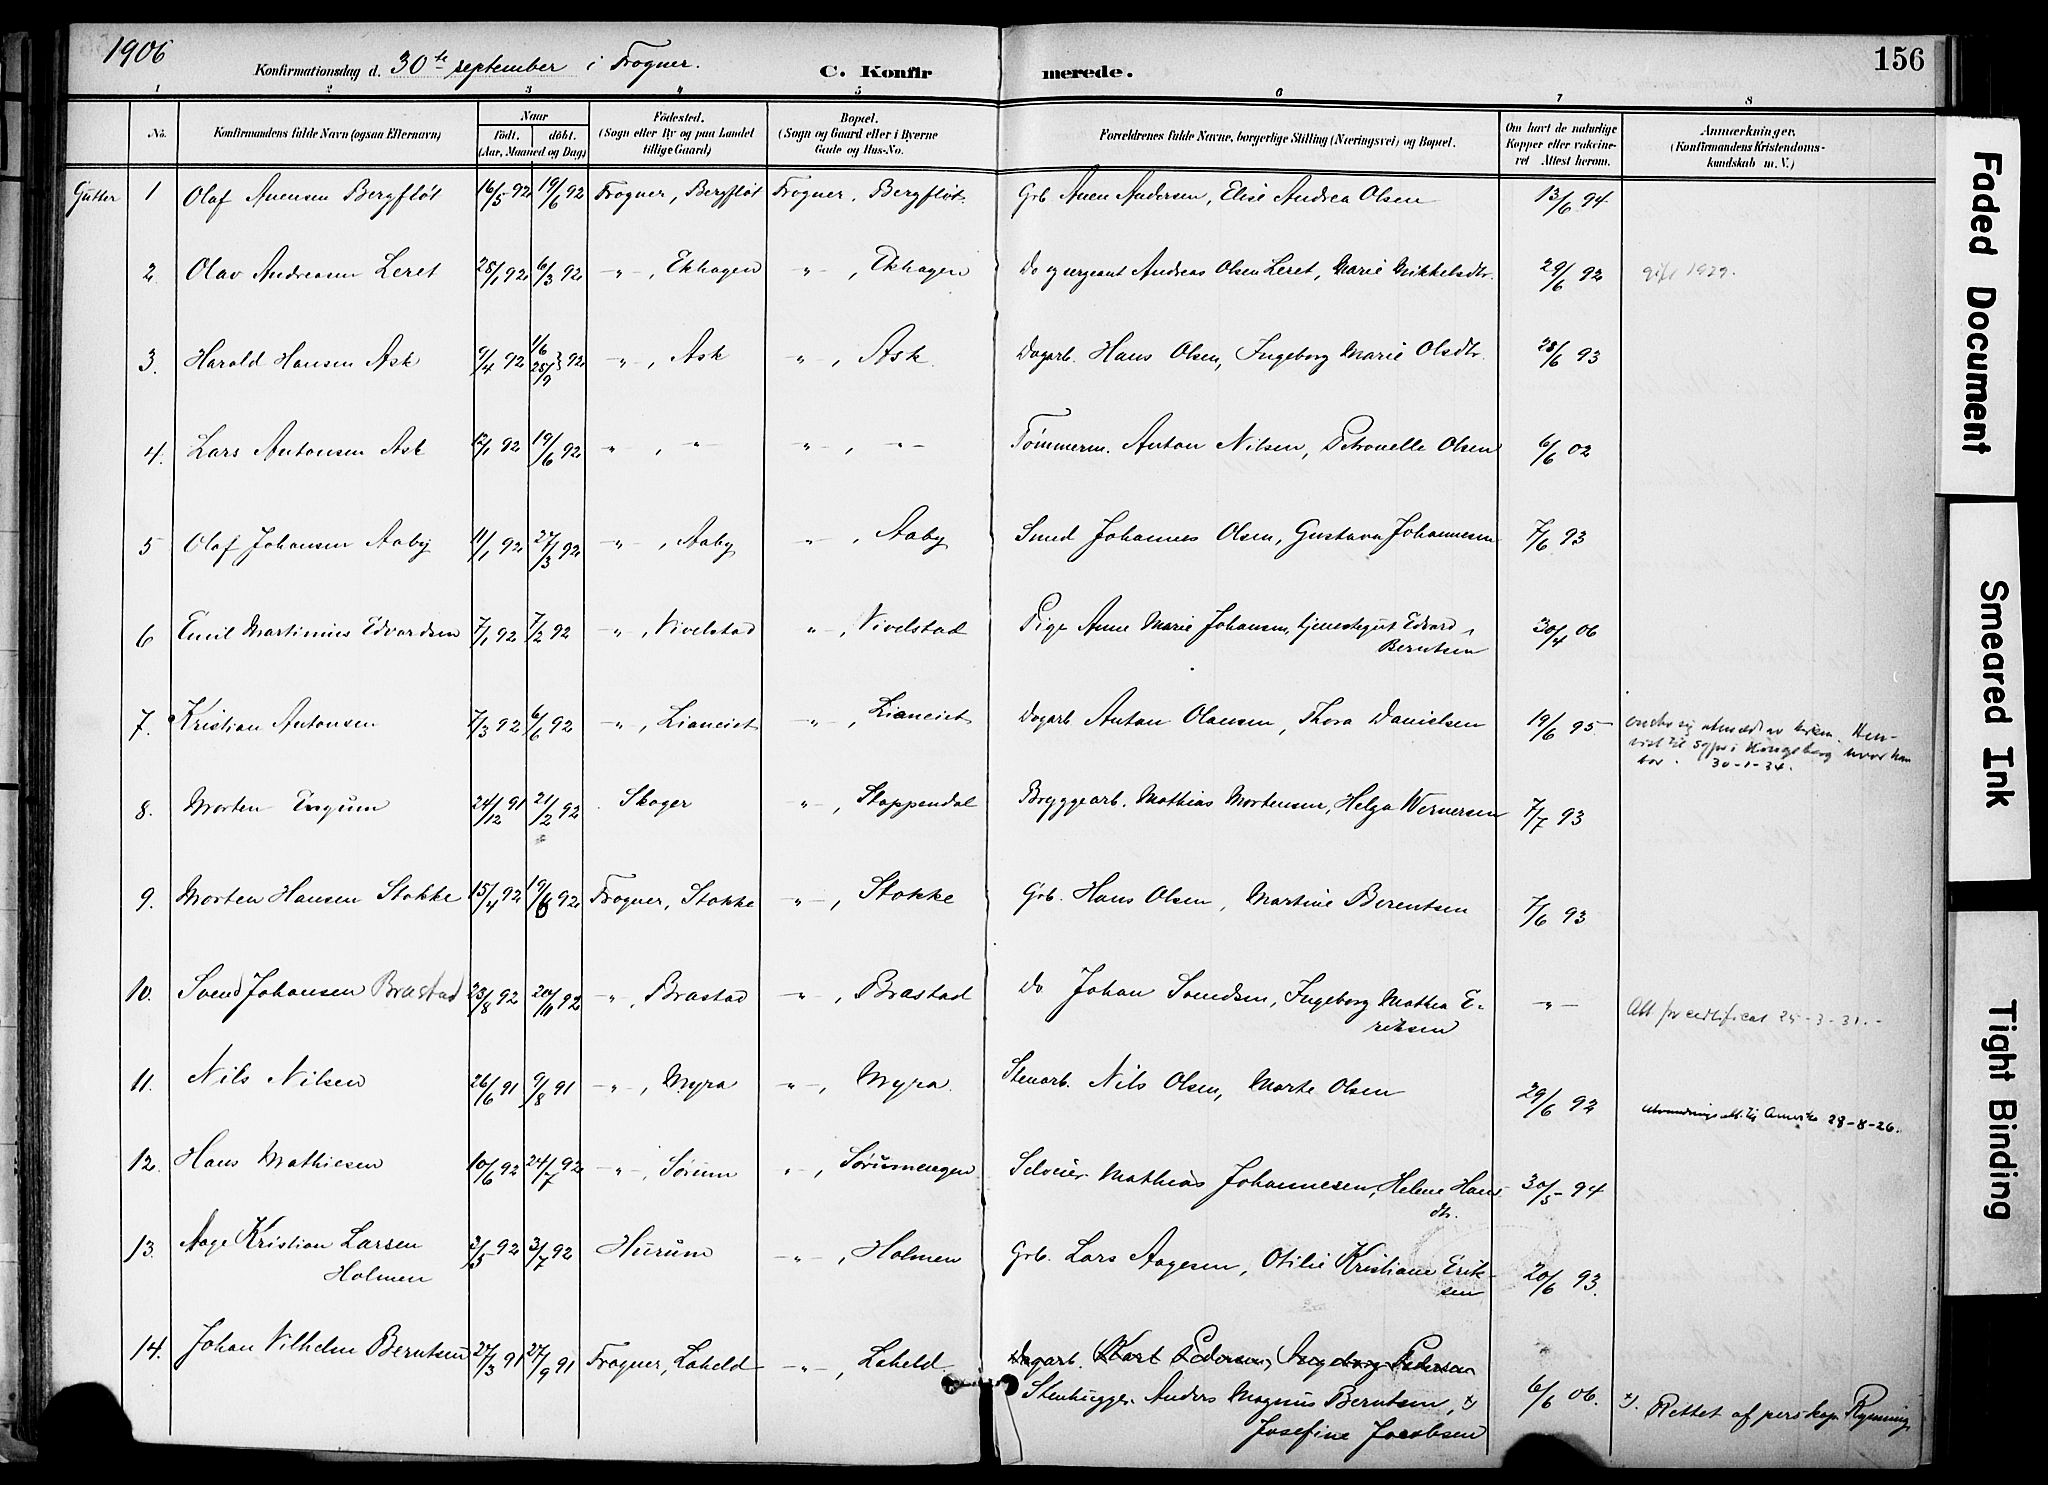 1906
Konfirmationsdag d. 30te september i Frogner.
C. Konfirmerede.
156
1 2 3 4 5 6 7 8
No.
Konfirmandens fulde Navn (ogsaa Efternavn)
Naar
Födt. döbt.
(Aar, Maaned og Dag)
Födested.
(Sogn eller By og paa Landet
tillige Gaard)
Bopæl.
(Sogn og Gaard eller i Byerne
Gade og Hus-No.
Forældrenes fulde Navne, borgerlige Stilling (Næringsvei) og Bopæl.
Om havt de naturlige
Kopper eller vakcine-
ret Attest herom.
Anmærkninger.
(Konfirmandens Kristendoms-
kundskab m. V.)
Gutter 1 Olaf Anensen Bergfløt 16/5 92 19/6 92 Frogner, Bergfløt Frogner, Bergfløt. Grb Anen Andersen, Elise Andrea Olsen 13/6 94
2 Olav Andreasen Leret 28/1 92 6/3 92 -"-, Ekhagen "-, Ekhagen Do og sergeant Andreas Olsen Leret, Marie Mikkelsdtr. 29/6 92 gift 1929.
3. Harald Hansen Ask 9/4 92 1/6 25/9 } 92 -"-, Ask "-, Ask. Dagarb. Hans Olsen, Ingeborg Marie Olsdtr. 28/6 93
4. Lars Antonsen Ask 12/1 92 19/6 92 -"-, -"- "-, -"- Tømmerm. Anton Nilsen, Petronelle Olsen 6/6 02
5 Olaf Johansen Aaby 11/1 92 27/3 92 -"-, Aaby "-, Aaby Smed Johannes Olsen, Gustava Johannesen 7/6 93
6 Emil Martinius Edvardsen 7/1 92 7/2 92 -"-, Nivelstad "-, Nivelstad Pige Anne Marie Johansen, tjenestegut Edvard
Berntsen 30/4 06
7. Kristian Antonsen 2/3 92 6/6 92 -"-, Lianeiet "-, Lianeiet Dagarb Anton Olausen, Thora Danielsen 19/6 95 ønsker sig utmeldt av kirken. Hen-
vist til sgpr i Kongsberg hvor han
bor. 30-1-34.
8. Morten Engum 24/12 91 21/2 92 Skoger "-, Stoppendal Bryggearb. Mathias Mortensen, Helga Wernersen 7/7 93
9. Morten Hansen Stokke 15/4 92 19/6 92 Frogner, Stokke "-, Stokke Grb. Hans Olsen, Martine Berentsen 7/6 93
10. Svend Johansen Brastad 23/8 92 20/11 92 -"-, Brastad "-, Brastad Do Johan Svendsen, Ingeborg Mathea E-
riksen -"- Att for certificat 25-3-31.-
11. Nils Nilsen 26/6 91 9/8 91 -"-, Myra "-, Myra. Stenarb. Nils Olsen, Marte Olsen 29/6 92 utvandrings att. til Amerika 28-8-26.
12. Hans Mathiesen 10/6 92 24/7 92 -"-, Sørum "-, Sørumengen Selveier Mathias Johannesen, Helene Hans
dtr. 30/5 94
13. Aage Kristian Larsen
Holmen 2/5 92 3/7 92 Hurum -"-, Holmen Grb. Lars Aagesen, Otilie Kristiane Erik-
sen 20/6 93.
14. Johan Vilhelm Berntsen 27/3 91 27/9 91 Frogner, Laheld -"-, Laheld. Dagarb. Karl Pedersen, Ingeborg Pedersen
Stenhugger Anders Magnus Berntsen, x)
Josefine Jacobsen 6/6 06. x). Rettet af pers kap. Rynning
Faded Document
Smeared Ink
Tight Binding